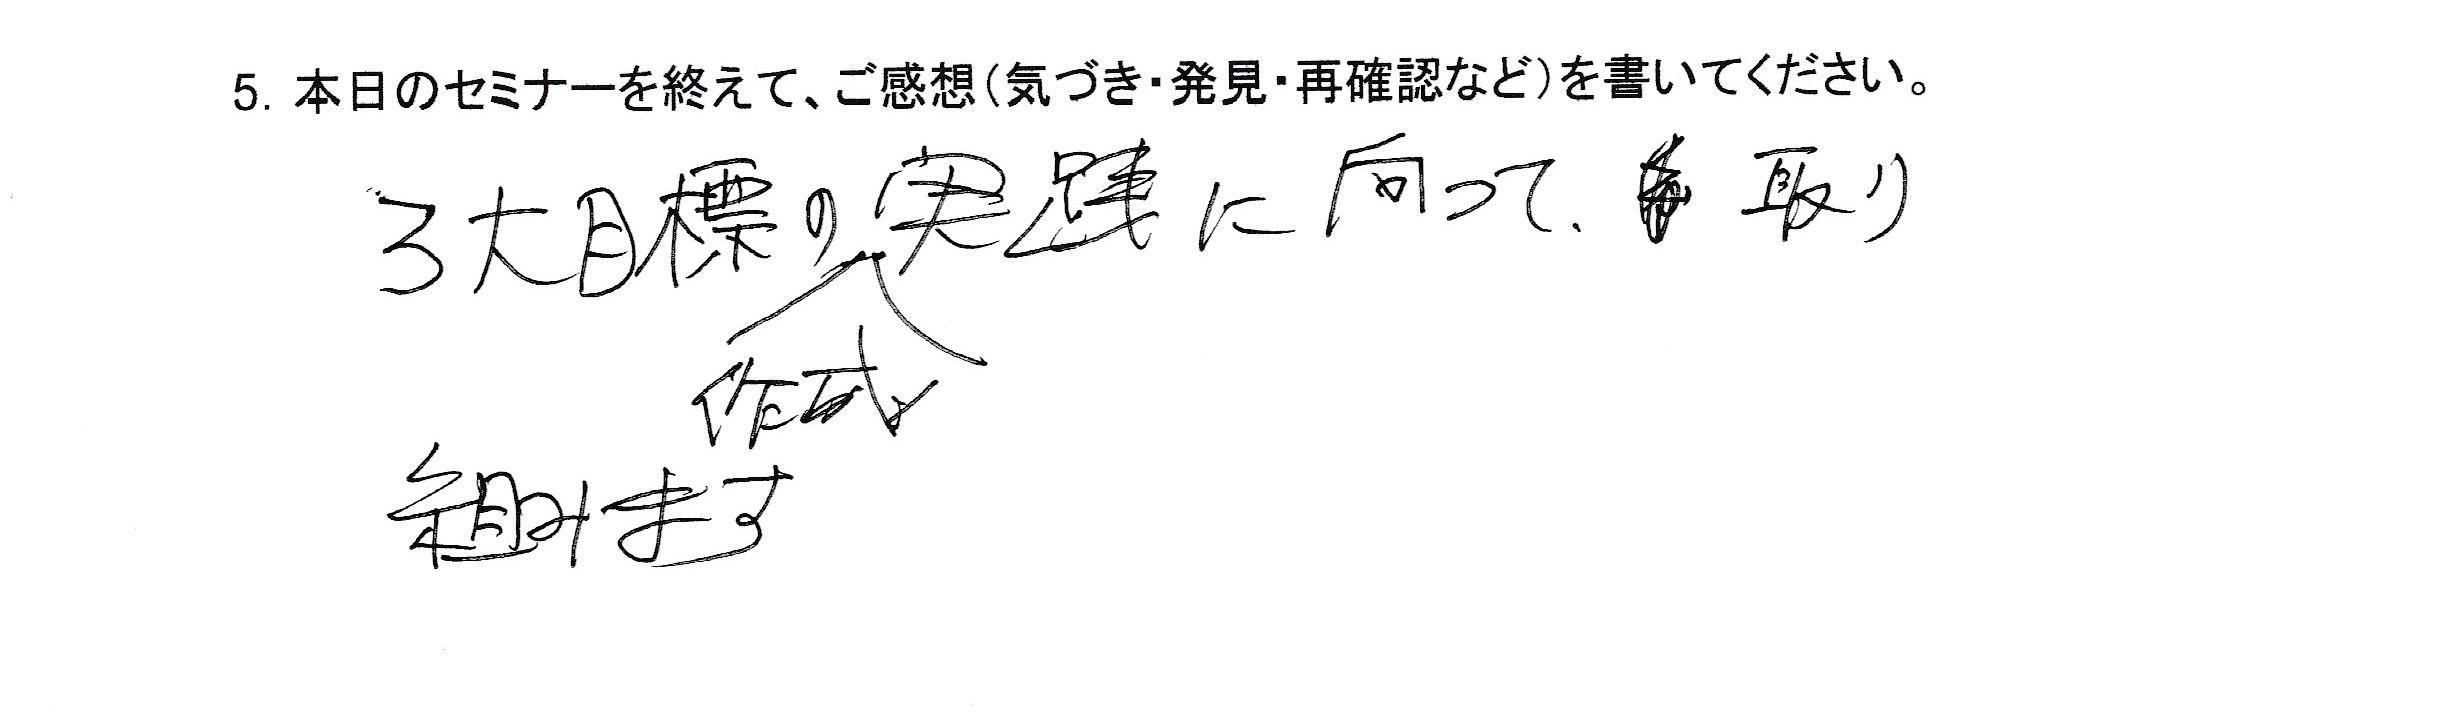 5. 本日のセミナーを終えて、ご感想(気づき・発見・再確認など)を書いてください。
3大目標の実践に向って、取り
作成
組みます